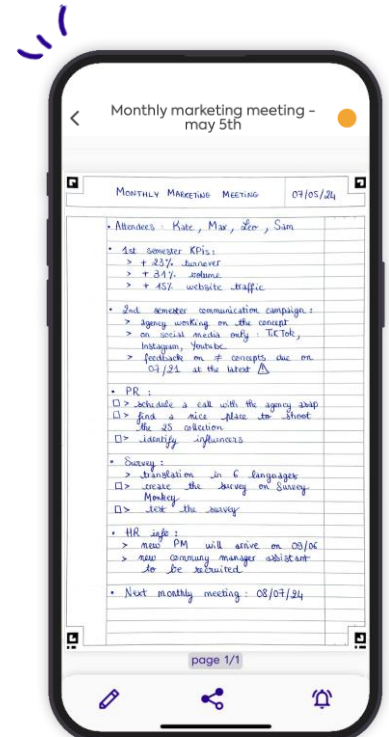 Monthly marketing meeting -
may 5th
MONTHLY MARKETING MEETING 07/05/24
• Attendees : Kate, Max, Leo, Sam
• 1st semester KPIs :
> + 23% turnover
> + 31% volume
> + 45% website traffic
• 2nd semester communication campaign :
> agency working on the concept
> on social media only : TikTok,
Instagram, Youtube.
> feedback on ≠ concepts due on
07/21 at the latest ⚠
• PR :
□> schedule a call with the agency asap
□> find a nice place to shoot
the 25 collection
□> identify influencers
• Survey :
> translation in 6 languages
□> create the survey on Survey
Monkey
□> test the survey
• HR info :
> new PM will arrive on 09/06
> new communy manager assistant
to be recruited
• Next monthly meeting : 08/07/24
page 1/1